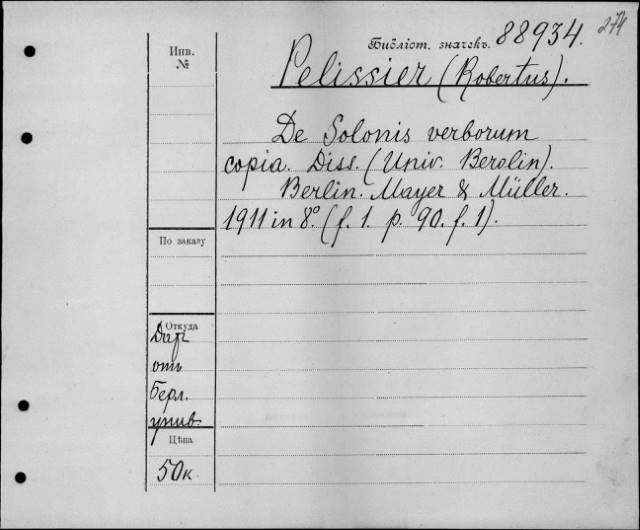 274
Библіот. значекъ. 88934.
Инв.
№
Pelissier (Robertus).
De Solonis verborum
copia. Diss. (Univ. Berolin).
Berlin. Mayer & Müller.
1911 in 8° (f. 1. p. 90. f. 1).
По заказу
Откуда
Даръ
отъ
Берл.
унив.
Цѣна
50к